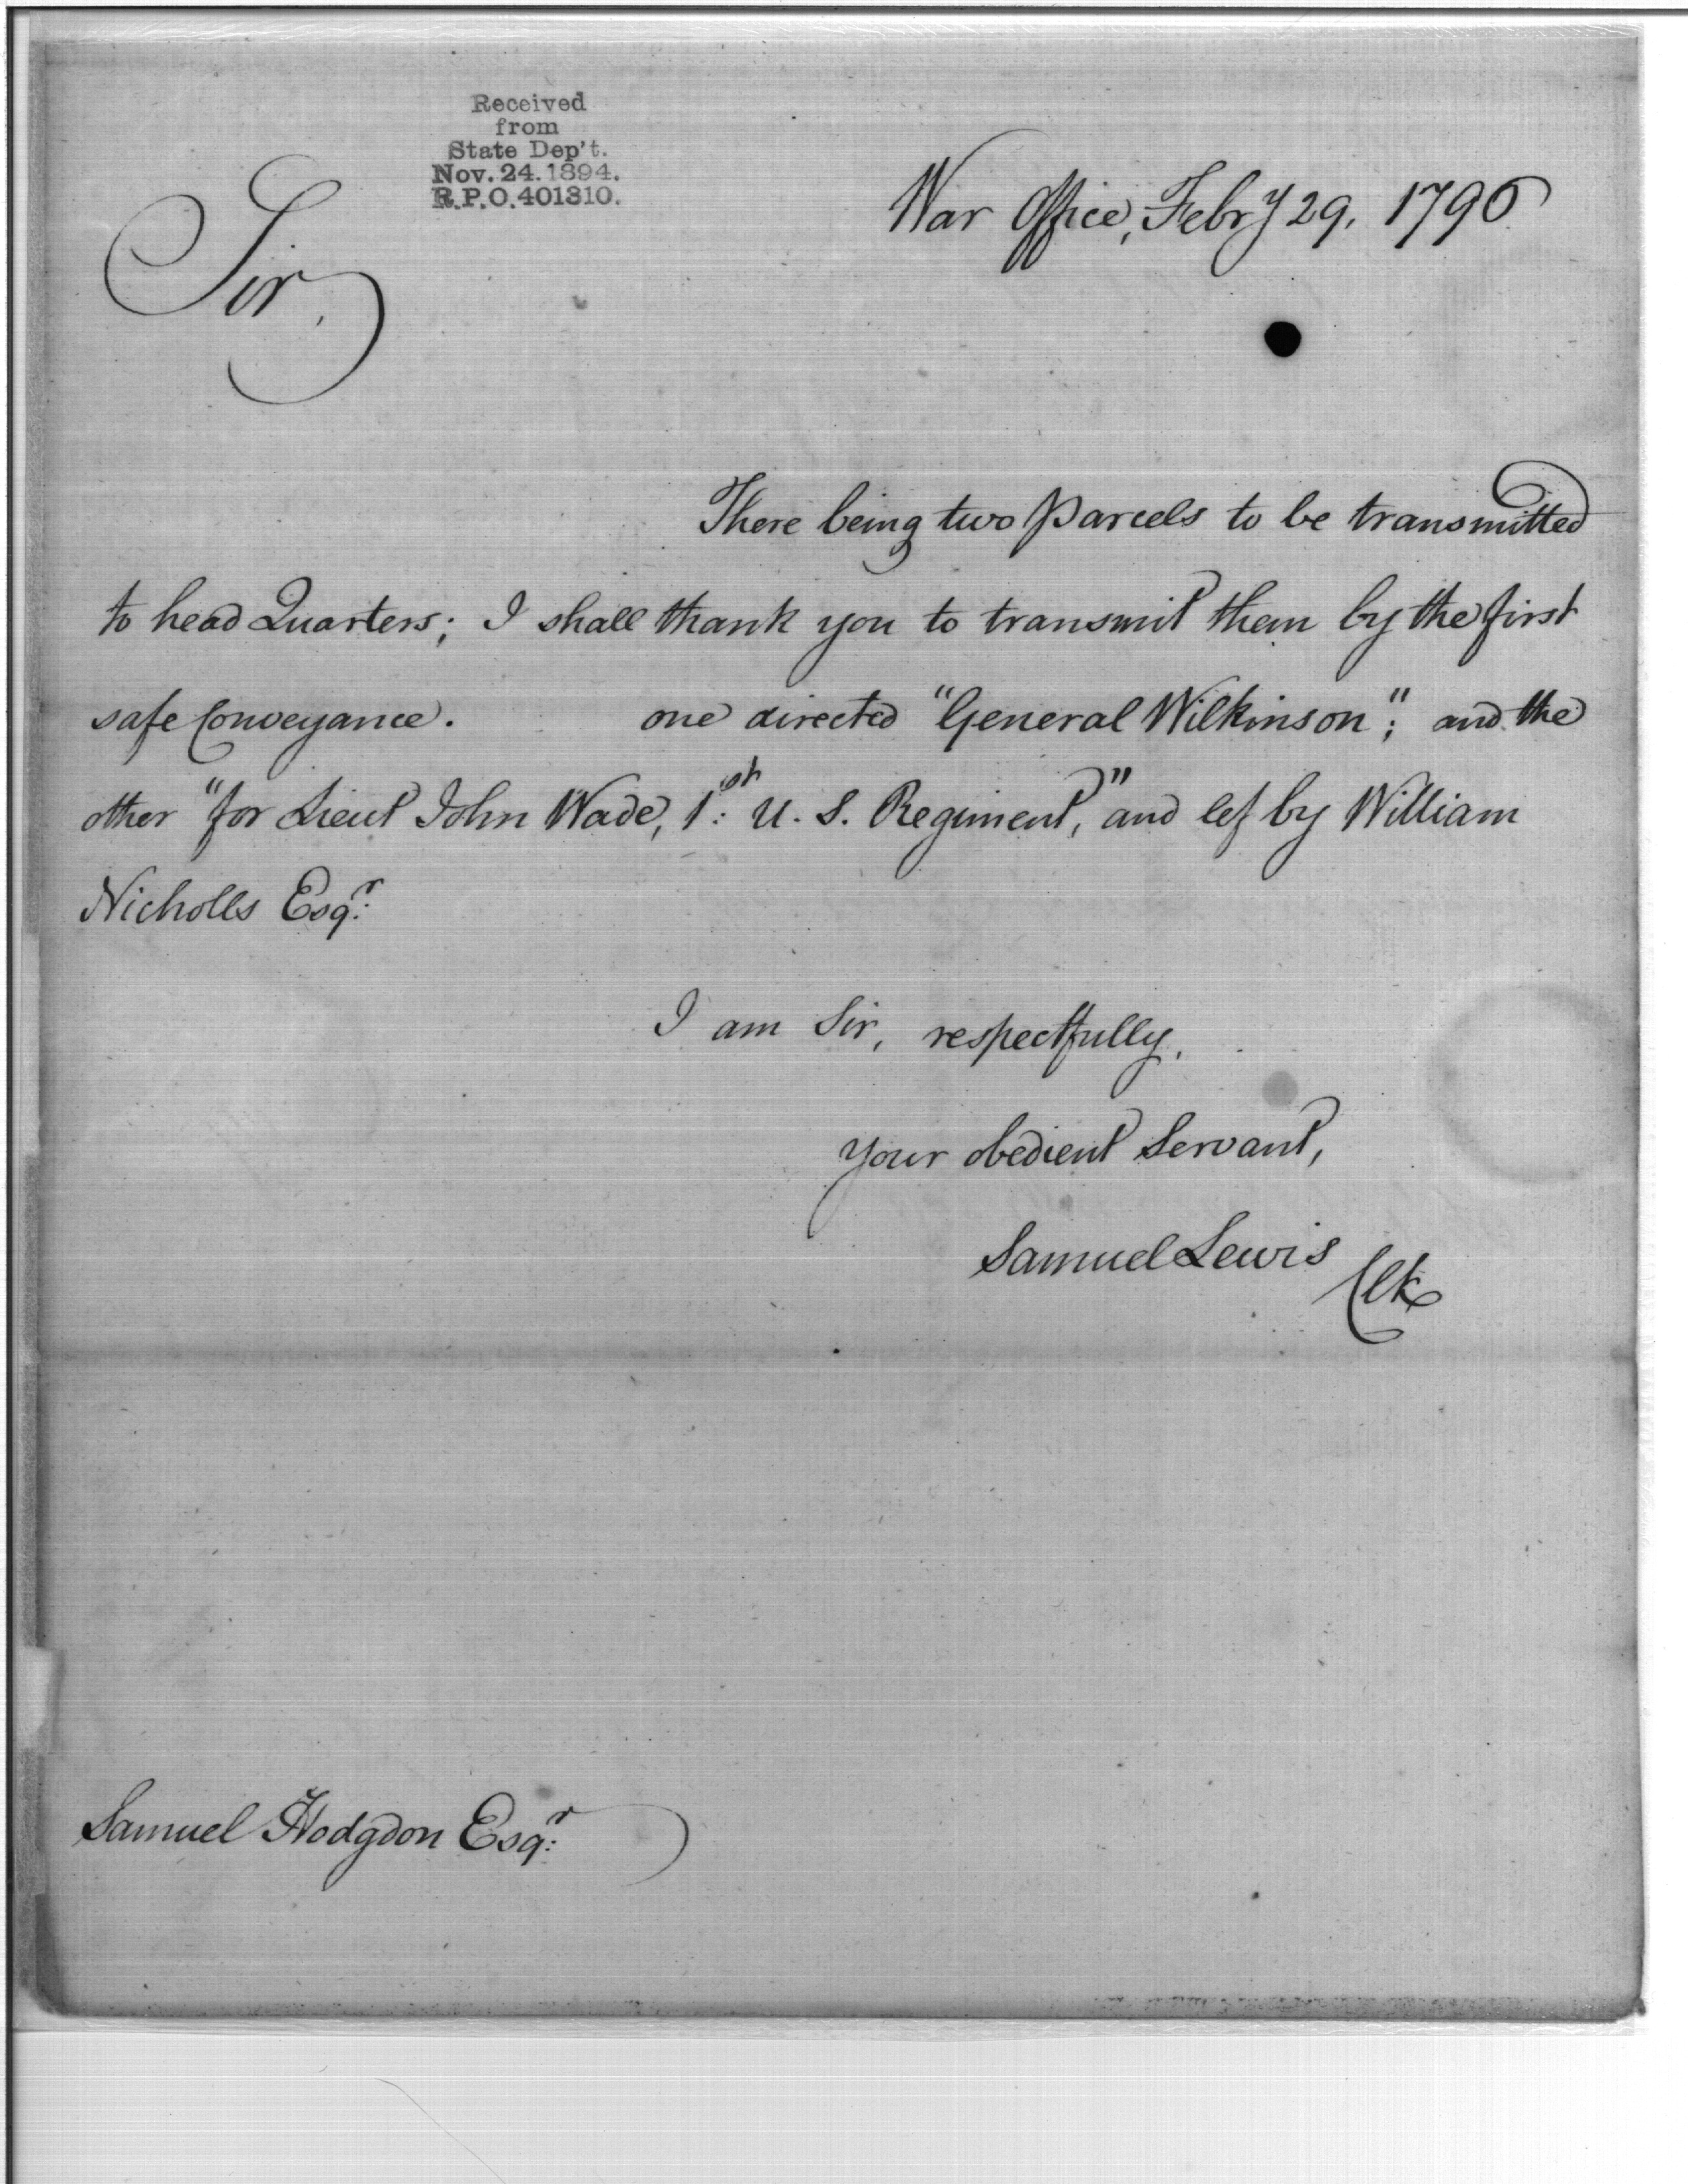 Received
from
State Dep't.
Nov. 24. 1894.
R.P.O. 401310.
War Office, Febry 29, 1796
Sir,
There being two Parcels to be transmitted
to head Quarters; I shall thank you to transmit them by the first
safe Conveyance. one directed "General Wilkinson"; and the
other "for Lieut John Wade, 1st: U. S. Regiment," and lef by William
Nicholls Esqr:
I am Sir, respectfully,
your obedient Servant,
Samuel Lewis Clk
Samuel Hodgdon Esqr: